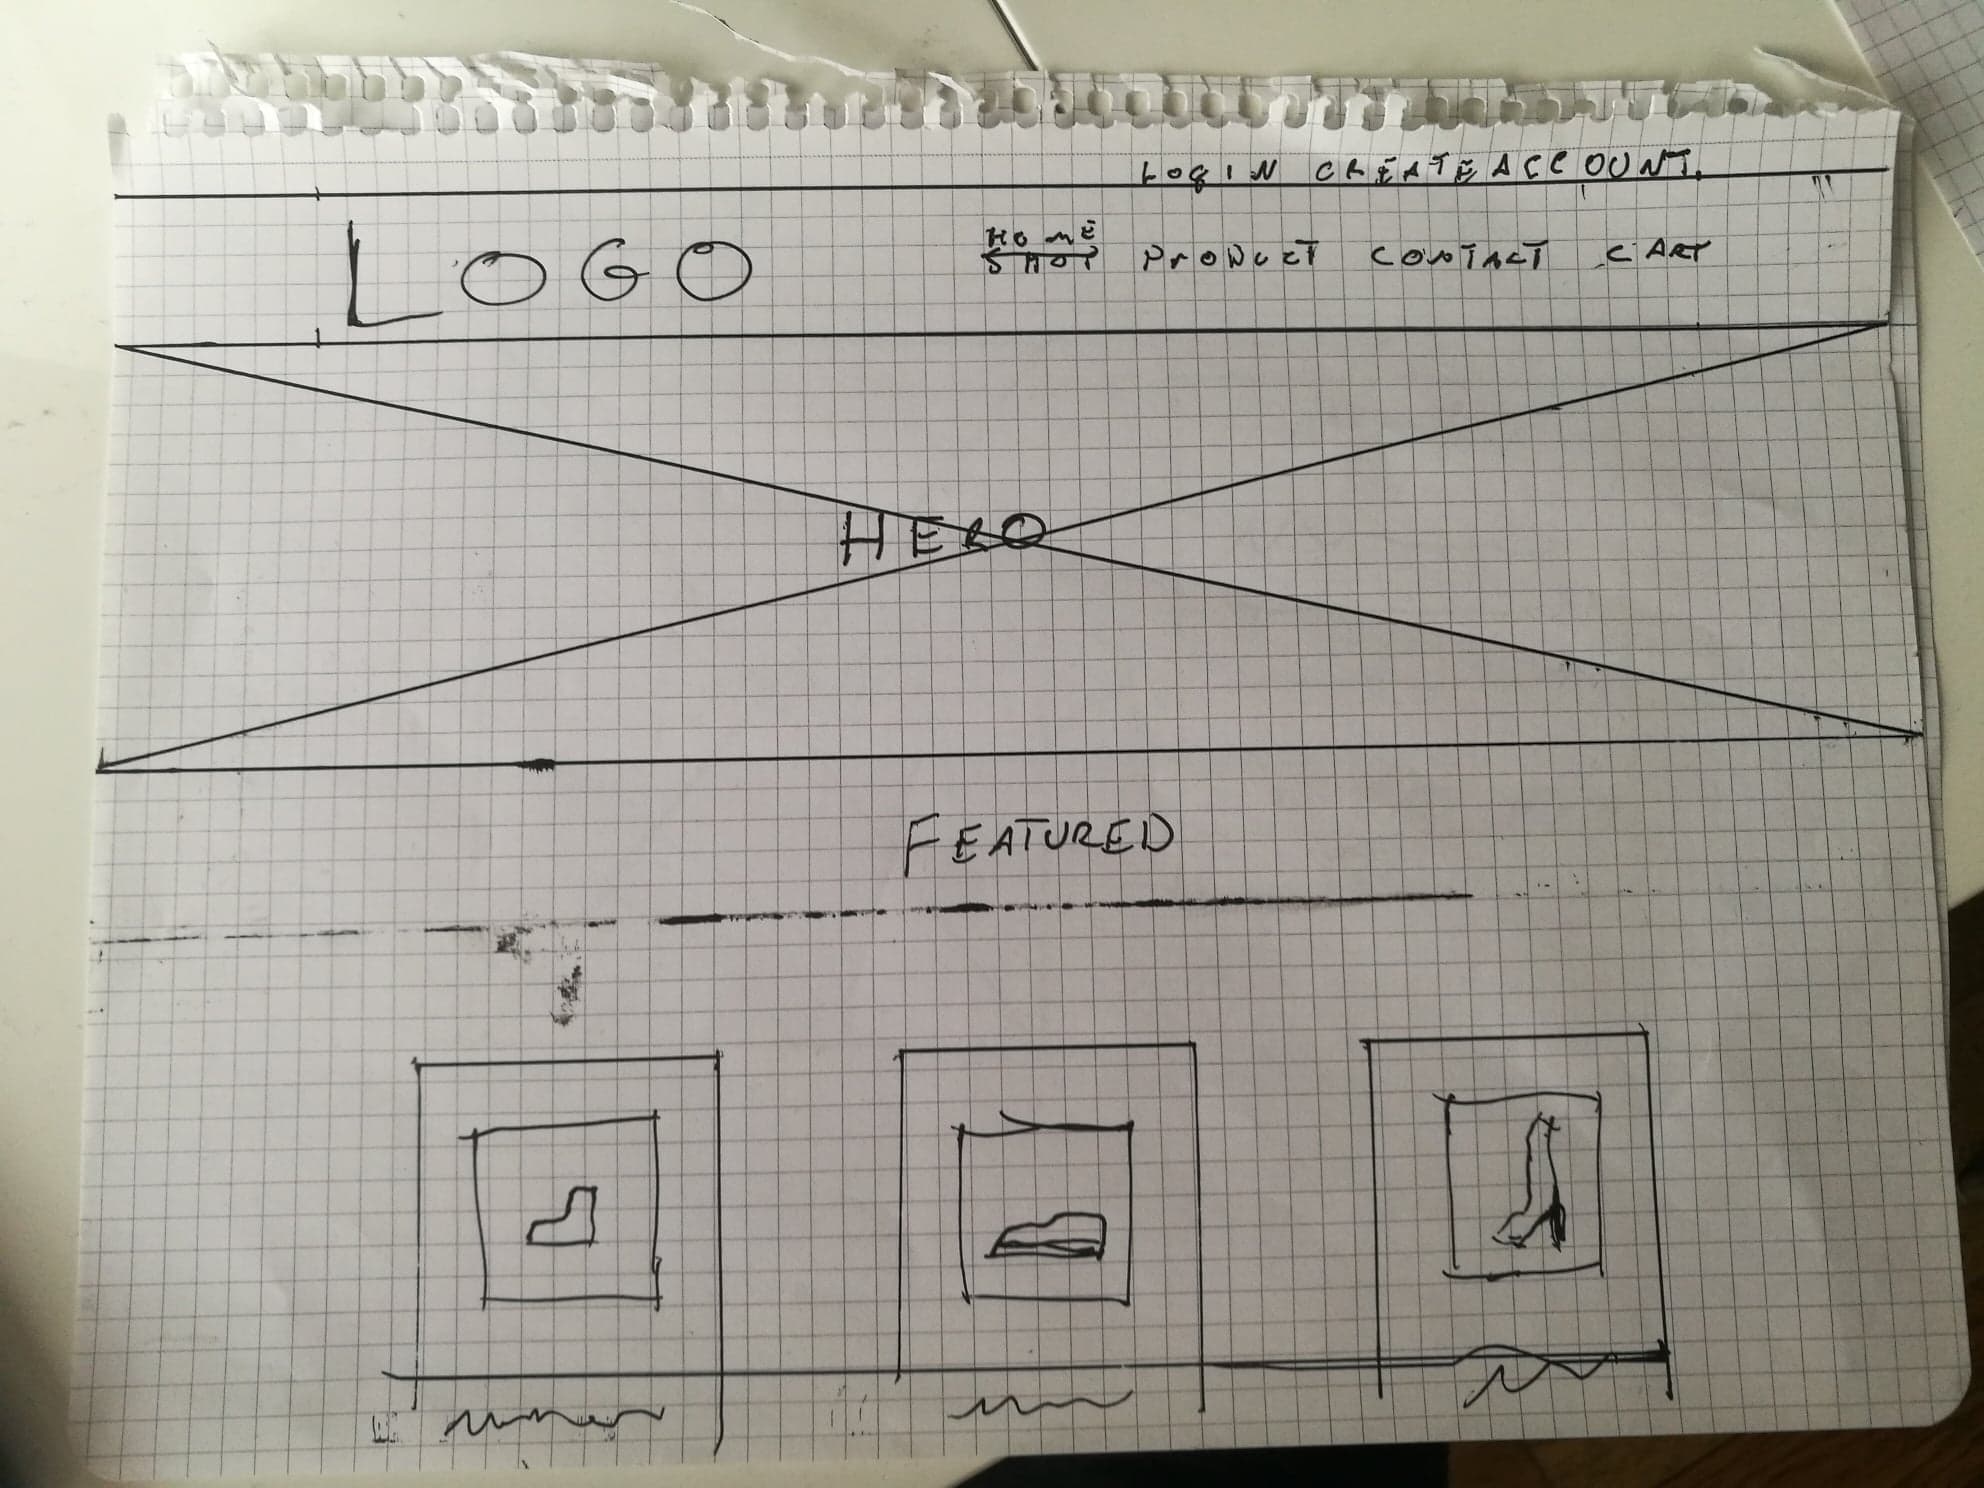 LOGIN CREATE ACCOUNT.
LOGO
HOME
SHOP PRODUCT CONTACT CART
HERO
FEATURED